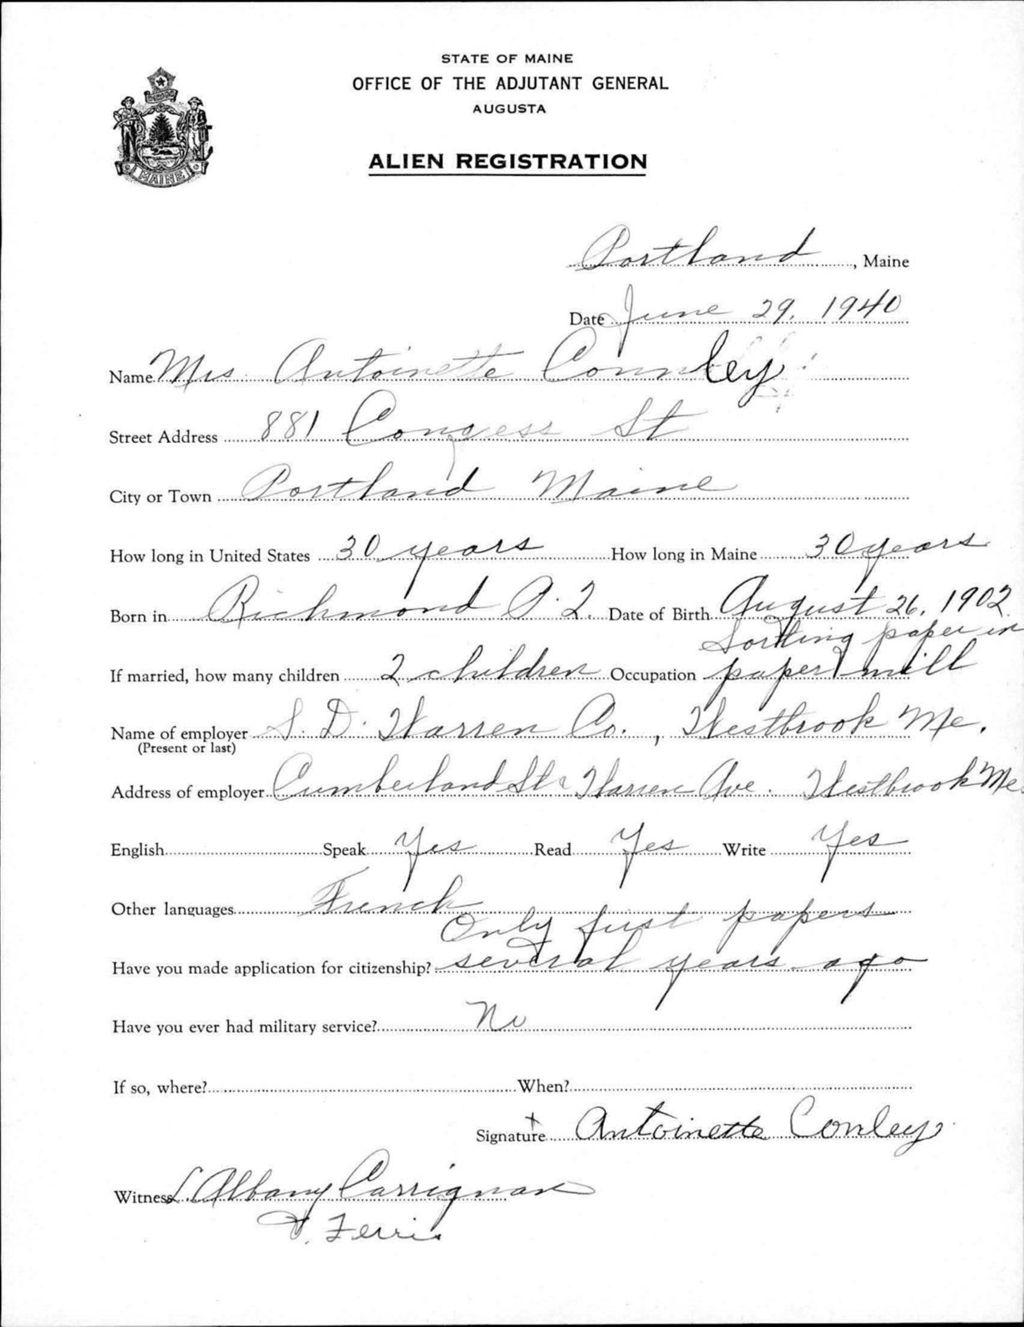 STATE OF MAINE
OFFICE OF THE ADJUTANT GENERAL
AUGUSTA
ALIEN REGISTRATION
MAINE
Portland, Maine
Date June 29, 1940
Name Mrs Antoinette Connley
Street Address 881 Congess St
City or Town Portland Maine
How long in United States 30 years How long in Maine 30 years
Born in Richmond P.Q. Date of Birth August 26, 1902
Sortling paper in
If married, how many children 2 children Occupation paper mill
Name of employer S. D. Warren Co., Westbrook Me.
(Present or last)
Address of employer Cumberland St & Warren Ave. Westbrook Me.
English Speak Yes Read Yes Write Yes
Other languages French
Only first papers
Have you made application for citizenship? several years ago
Have you ever had military service? No
If so, where? When?
Signature Antoinette Conley
Witness Albany Carrignan
Ferris